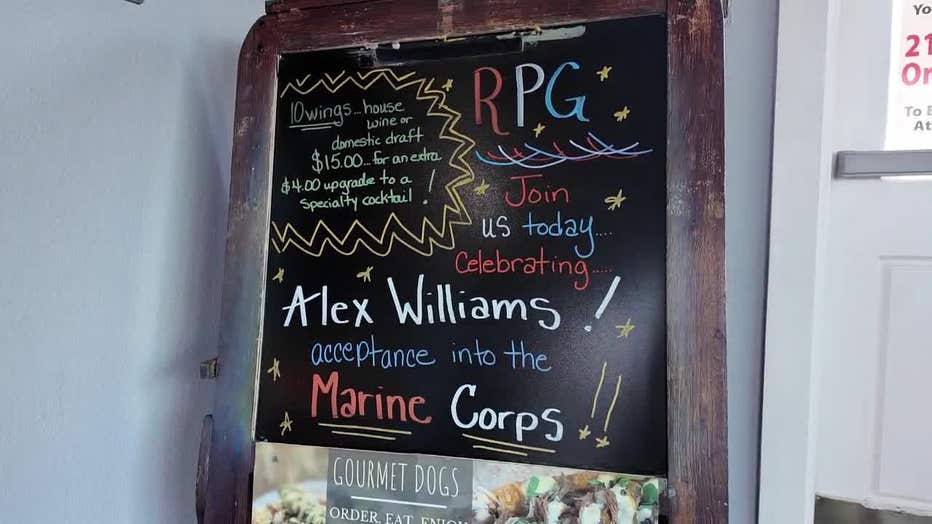 10 wings...house
wine or
domestic draft
$15.00...for an extra
$4.00 upgrade to a
specialty cocktail !
RPG
Join
us today....
Celebrating.....
Alex Williams !
acceptance into the
Marine Corps !!
GOURMET DOGS
ORDER. EAT. ENJOY
Yo
21
Or
To B
At